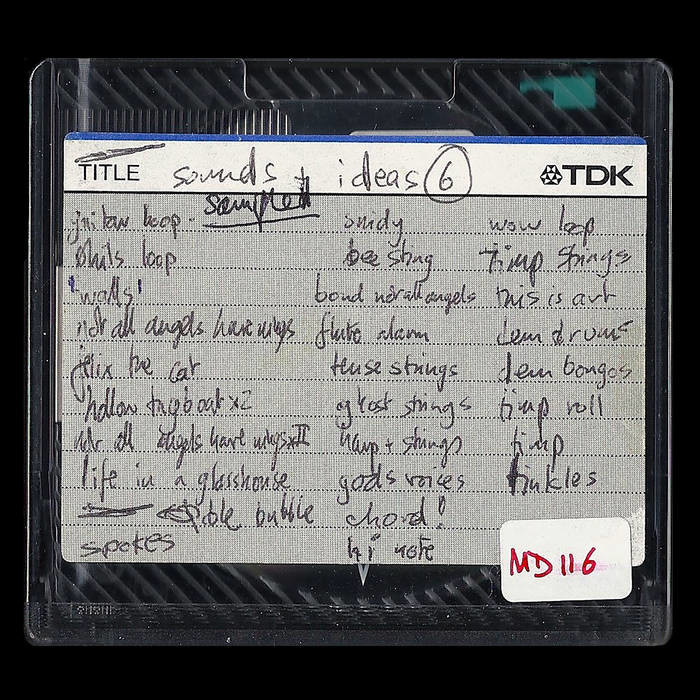 TITLE sounds + ideas 6
TDK
sampled
guitar loop
loop
'walls'
not all angels have wings
felix the cat
hollow tugboat x2
nor all angels have wings x II
life in a glasshouse
bubble
spokes
bee sting
bond not all angels
flute alarm
tense strings
ghost strings
harp + strings
gods voices
chord!
hi note
wow loop
timp strings
this is art
dem drums
dem bongos
timp roll
timp
tinkles
MD 116